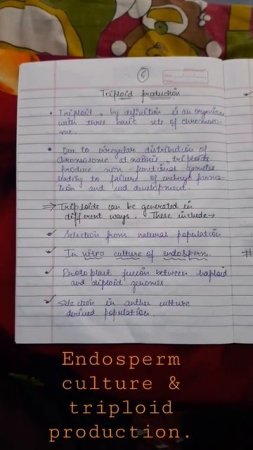 6
Triploid production
• Triploid, by definition is an organism
with three basic sets of chromoso-
me.
• Due to irregular distribution of
chromosome at meiosis, triploids
produce non-functional gametes
leading to failure of embryo forma-
tion and seed development.
⇒ Triploids can be generated in
different ways. These include→
✓ Selection from natural population
✓ In vitro culture of endosperm.
✓ Protoplast fusion between haploid
and diploid genomes
✓ Selection in anther culture
derived population.
Endosperm
culture &
triploid
production.